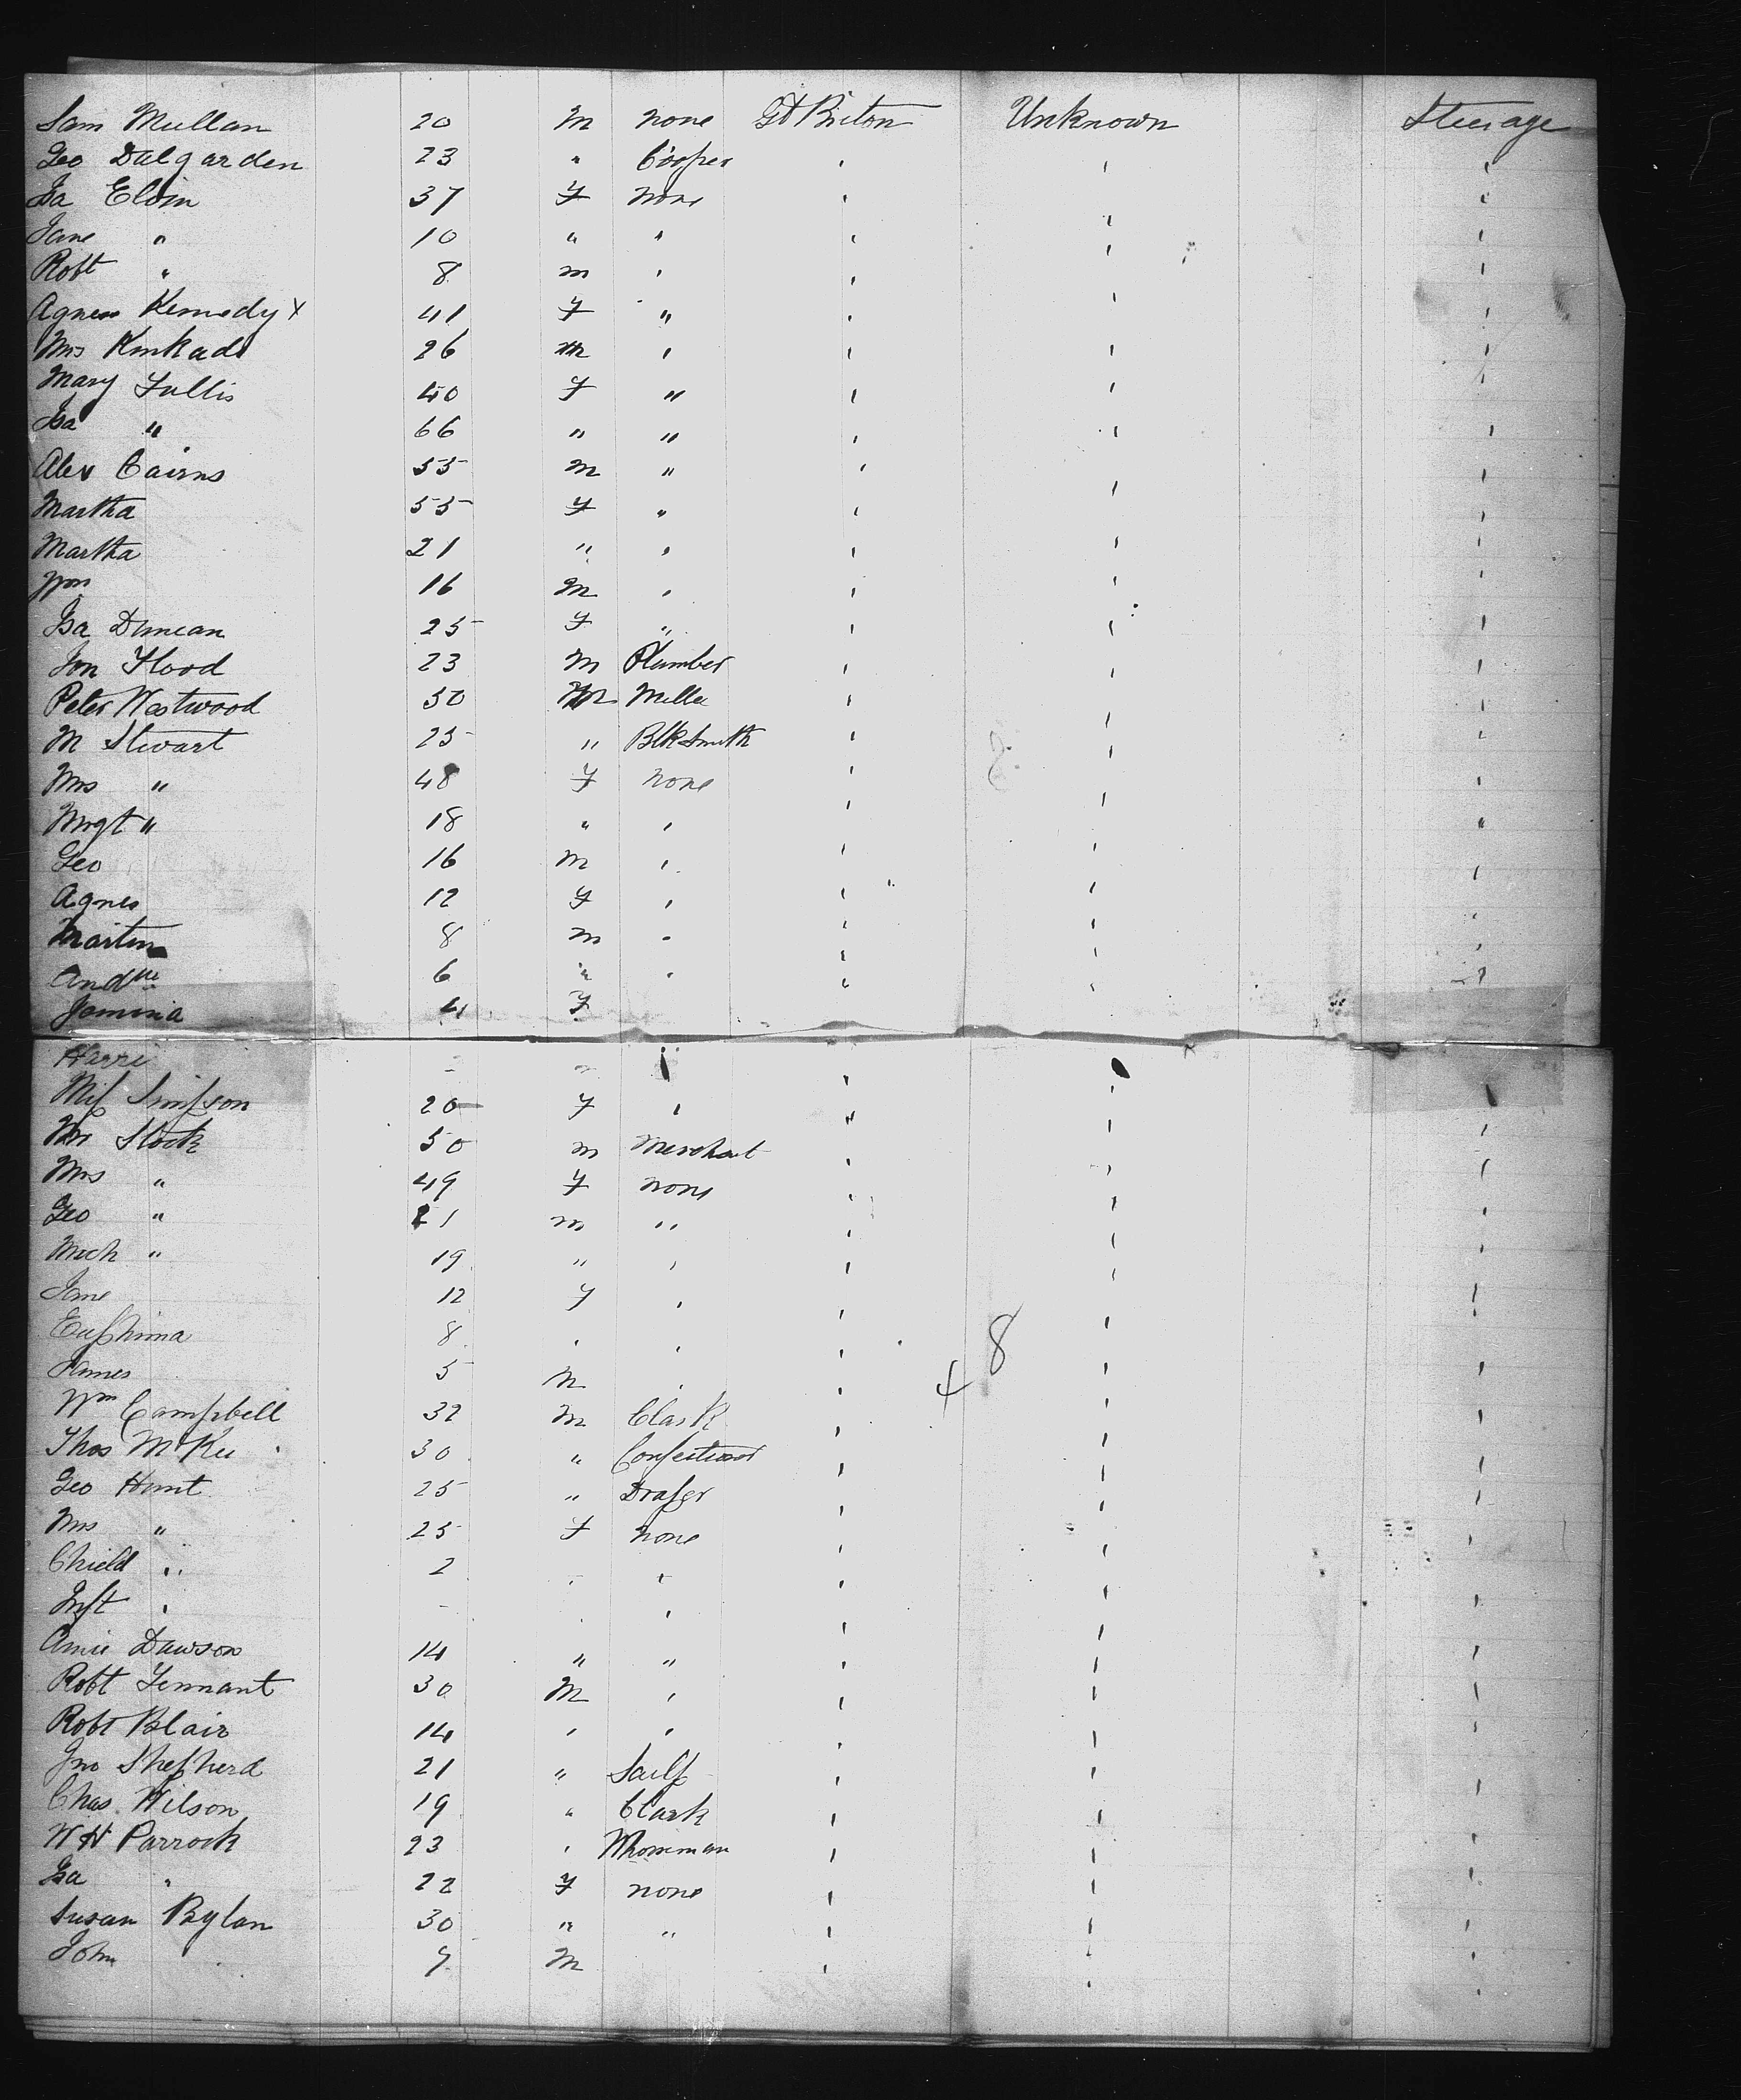 Sam Mullan 20 M none Gt Briton Unknown Steerage
Geo Dalgarden 23 " Cooper ' ' '
Isa Elvin 37 F none ' ' '
Jane " 10 " " ' ' '
Robt " 8 m ' ' ' '
Agnes Kennedy x 41 F " ' ' '
Mrs Kinkade 26 m ' ' ' '
Mary Tullis 40 F " ' ' '
Isa " 66 " " ' ' '
Alex Cairns 55 M " ' ' '
Martha 55 F " ' ' '
Martha 21 " ' ' ' '
Wm 16 M ' ' ' '
Isa Duncan 25 F " ' ' '
Jon Flood 23 M Plumber ' ' '
Peter Westwood 50 M Miller ' ' '
M Stewart 25 " Blksmith ' ' '
Mrs " 48 F none ' ' '
Mrgt " 18 " ' ' ' "
Geo 16 M ' ' ' '
Agnes 12 F ' ' ' '
Martin 8 m " ' ' '
Andw 6 " ' ' ' '
Jamina 4 F
Harri - " ' ' ' '
Miſs Simpson 20 F ' " ' '
Mr Stock 50 m Merchat ' ' '
Mrs " 49 F none ' ' '
Geo " 21 m " ' ' '
Mich " 19 " ' ' ' '
Jane 12 F ' ' ' '
Euphima 8 ' ' ' ' '
James 5 M ' ' 4 8 ' '
Wm Campbell 32 M Clark ' ' '
Thos McKee 30 " Confectionor ' ' '
Geo Hunt 25 " Draper ' ' '
Mrs " 25 F none ' ' '
Chield " 2 " " ' ' '
Inft ' - ' ' ' ' '
Amie Dawson 14 " " ' ' '
Robt Tennant 30 M ' ' ' '
Robt Blair 14 ' ' ' ' '
Jno Shepherd 21 " ' ' '
Chas Wilson 19 " Clark ' ' '
W H Parrock 23 ' ' ' '
Isa " 22 F none ' ' '
Susan Bylan 30 " " ' ' '
John 7 M ' ' '